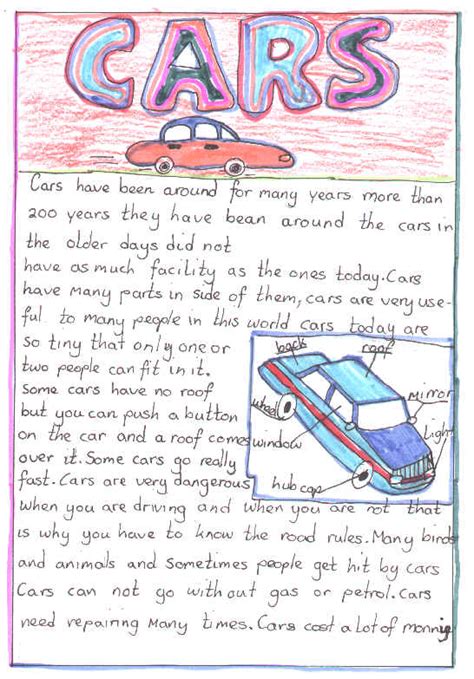 CARS
Cars have been around for many years more than
200 years they have bean around the cars in
the older days did not
have as much facility as the ones today. Cars
have many parts in side of them, cars are very use-
ful to many people in this world cars today are
so tiny that only one or
two people can fit in it.
Some cars have no roof
but you can push a button
on the car and a roof comes
over it. Some cars go really
fast. Cars are very dangerous
back
roof
mirror
wheel
light
window
hub cap
when you are driving and when you are not that
is why you have to know the road rules. Many birds
and animals and sometimes people get hit by cars
Cars can not go without gas or petrol. Cars
need repairing many times. Cars cost a lot of monnig